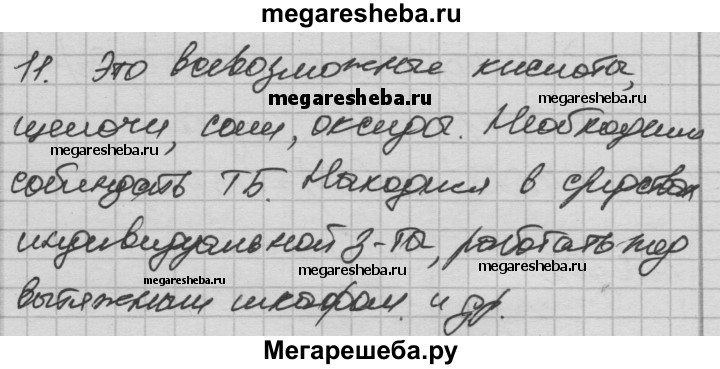 megaresheba.ru
11. Это всевозможные кислоты,
megaresheba.ru
megaresheba.ru
megaresheba.ru
щелочи, соли, оксиды. Необходимо
megaresheba.ru
соблюдать ТБ. Находися в средствах
megaresheba.ru
индивидуальной з-ты, работать под
megaresheba.ru
megaresheba.ru
megaresheba.ru
вытяжным шкафом и др.
Мегарешеба.ру